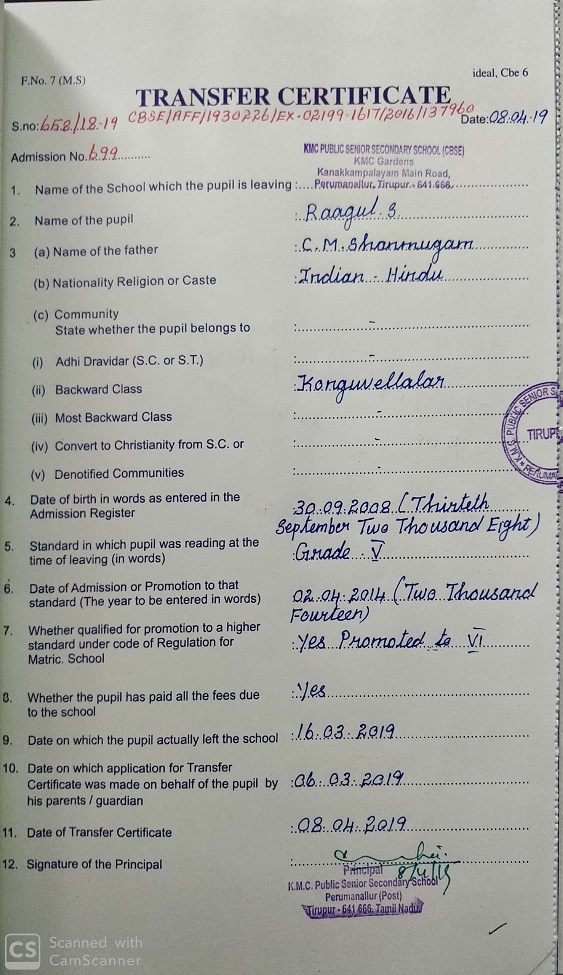 F.No. 7 (M.S)
ideal, Cbe 6
TRANSFER CERTIFICATE
S.no: 658/18-19 CBSE/AFF/1930226/EX-02199-1617/2016/137960 Date: 08.04.19
Admission No. 699
KMC PUBLIC SENIOR SECONDARY SCHOOL (CBSE)
KMC Gardens
Kanakkampalayam Main Road,
1. Name of the School which the pupil is leaving : Perumanallur, Tirupur - 641 666.
2. Name of the pupil : Raagul. S
3 (a) Name of the father : C.M. Shanmugam
(b) Nationality Religion or Caste : Indian - Hindu
(c) Community
State whether the pupil belongs to : -
(i) Adhi Dravidar (S.C. or S.T.) : -
(ii) Backward Class : Konguvellalar
(iii) Most Backward Class : -
(iv) Convert to Christianity from S.C. or : -
(v) Denotified Communities : -
K.M.C. PUBLIC SENIOR
TIRUP
PERUMA
4. Date of birth in words as entered in the : 30.09.2008 (Thirteth
Admission Register September Two Thousand Eight)
5. Standard in which pupil was reading at the : Grade - V
time of leaving (in words)
6. Date of Admission or Promotion to that : 02.04.2014 (Two Thousand
standard (The year to be entered in words) Fourteen)
7. Whether qualified for promotion to a higher : Yes Promoted to VI
standard under code of Regulation for
Matric. School
8. Whether the pupil has paid all the fees due : Yes
to the school
9. Date on which the pupil actually left the school : 16.03.2019
10. Date on which application for Transfer
Certificate was made on behalf of the pupil by : 06.03.2019
his parents / guardian
11. Date of Transfer Certificate : 08.04.2019
12. Signature of the Principal :
Principal 8/4/19
K.M.C. Public Senior Secondary School
Perumanallur (Post)
Tirupur - 641 666. Tamil Nadu
CS Scanned with
CamScanner